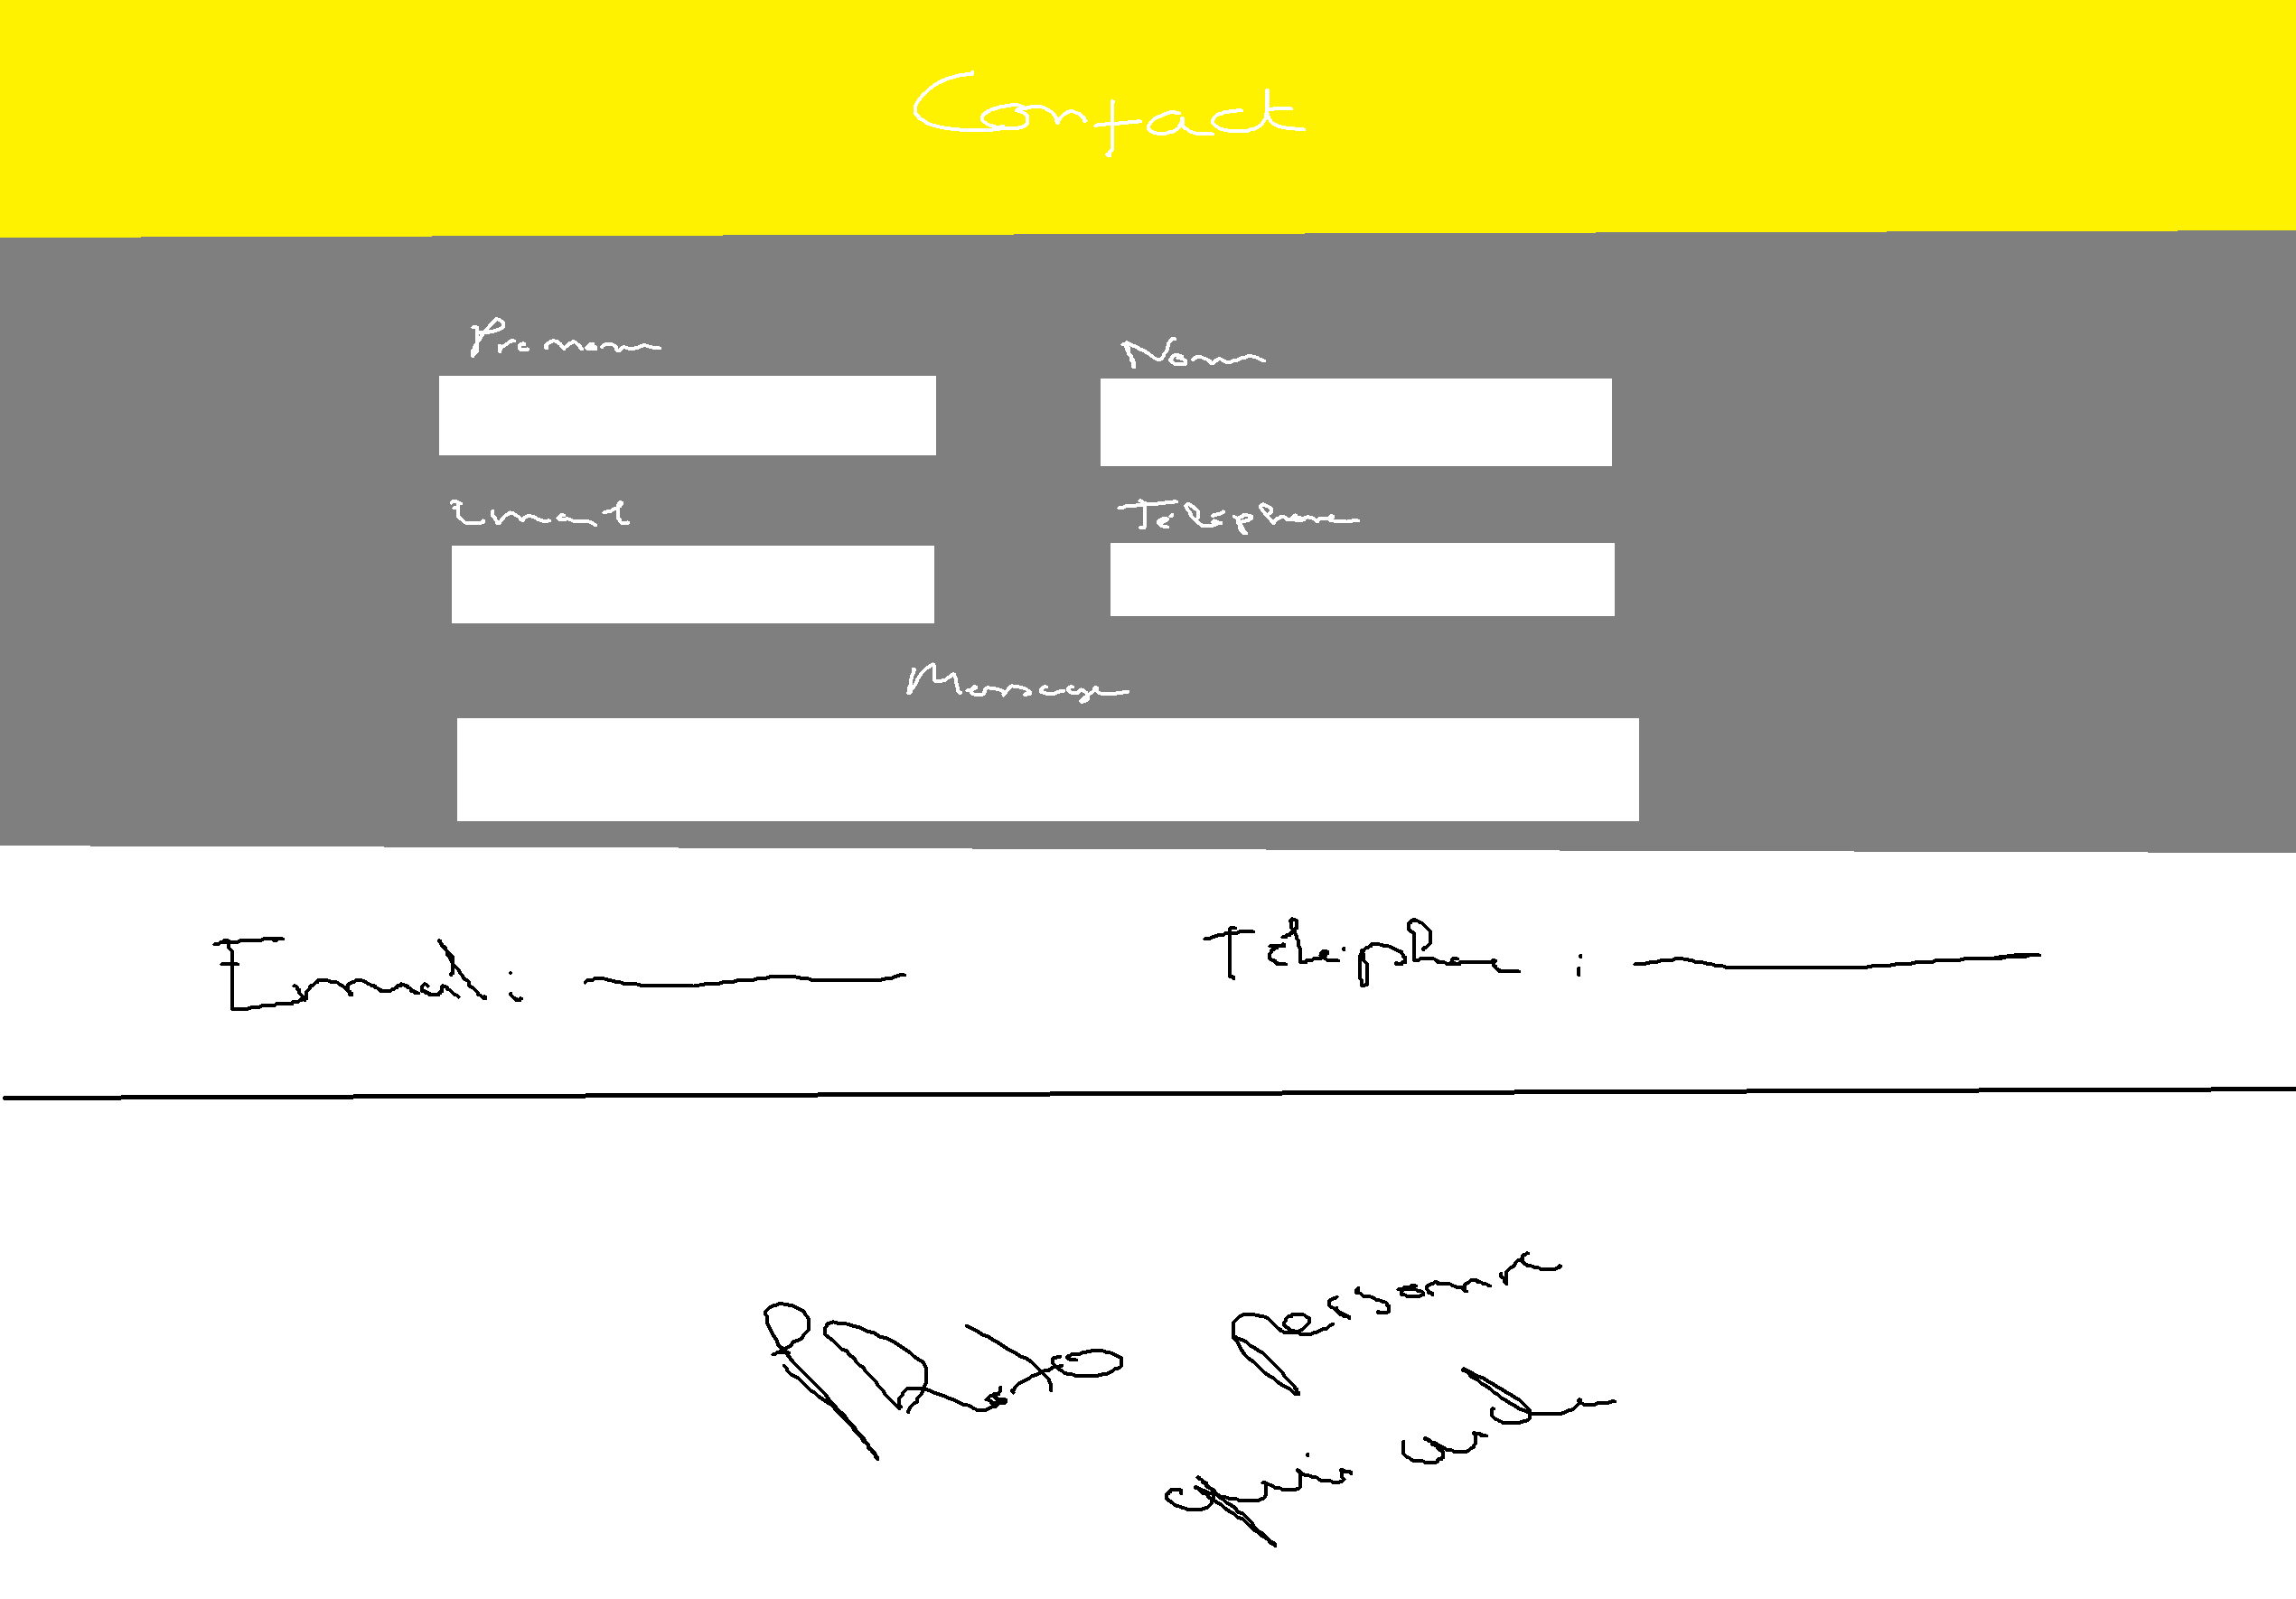 Contact
Prenom
Nom
Email
Téléphone
Message
Email : Téléphone :
Photo personne
qui aide